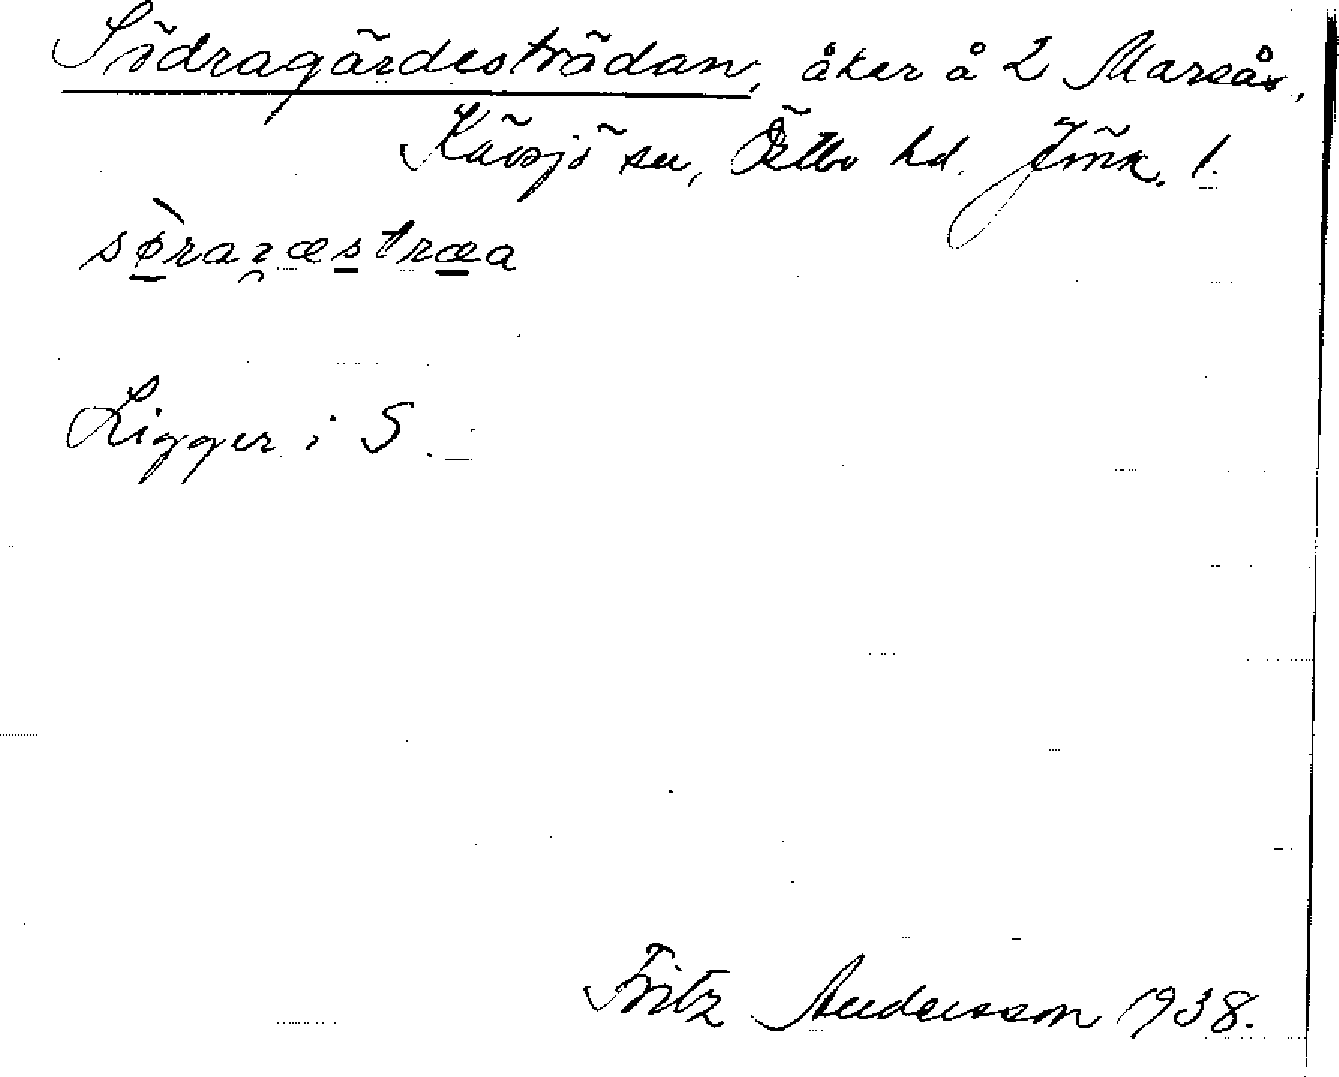 Södragärdesträdan, åker å 2 Marsås,
Kävsjö sn, Östbo hd. Jönk. l.
søraræstræa
Ligger i S.
Fritz Andersson 1938.